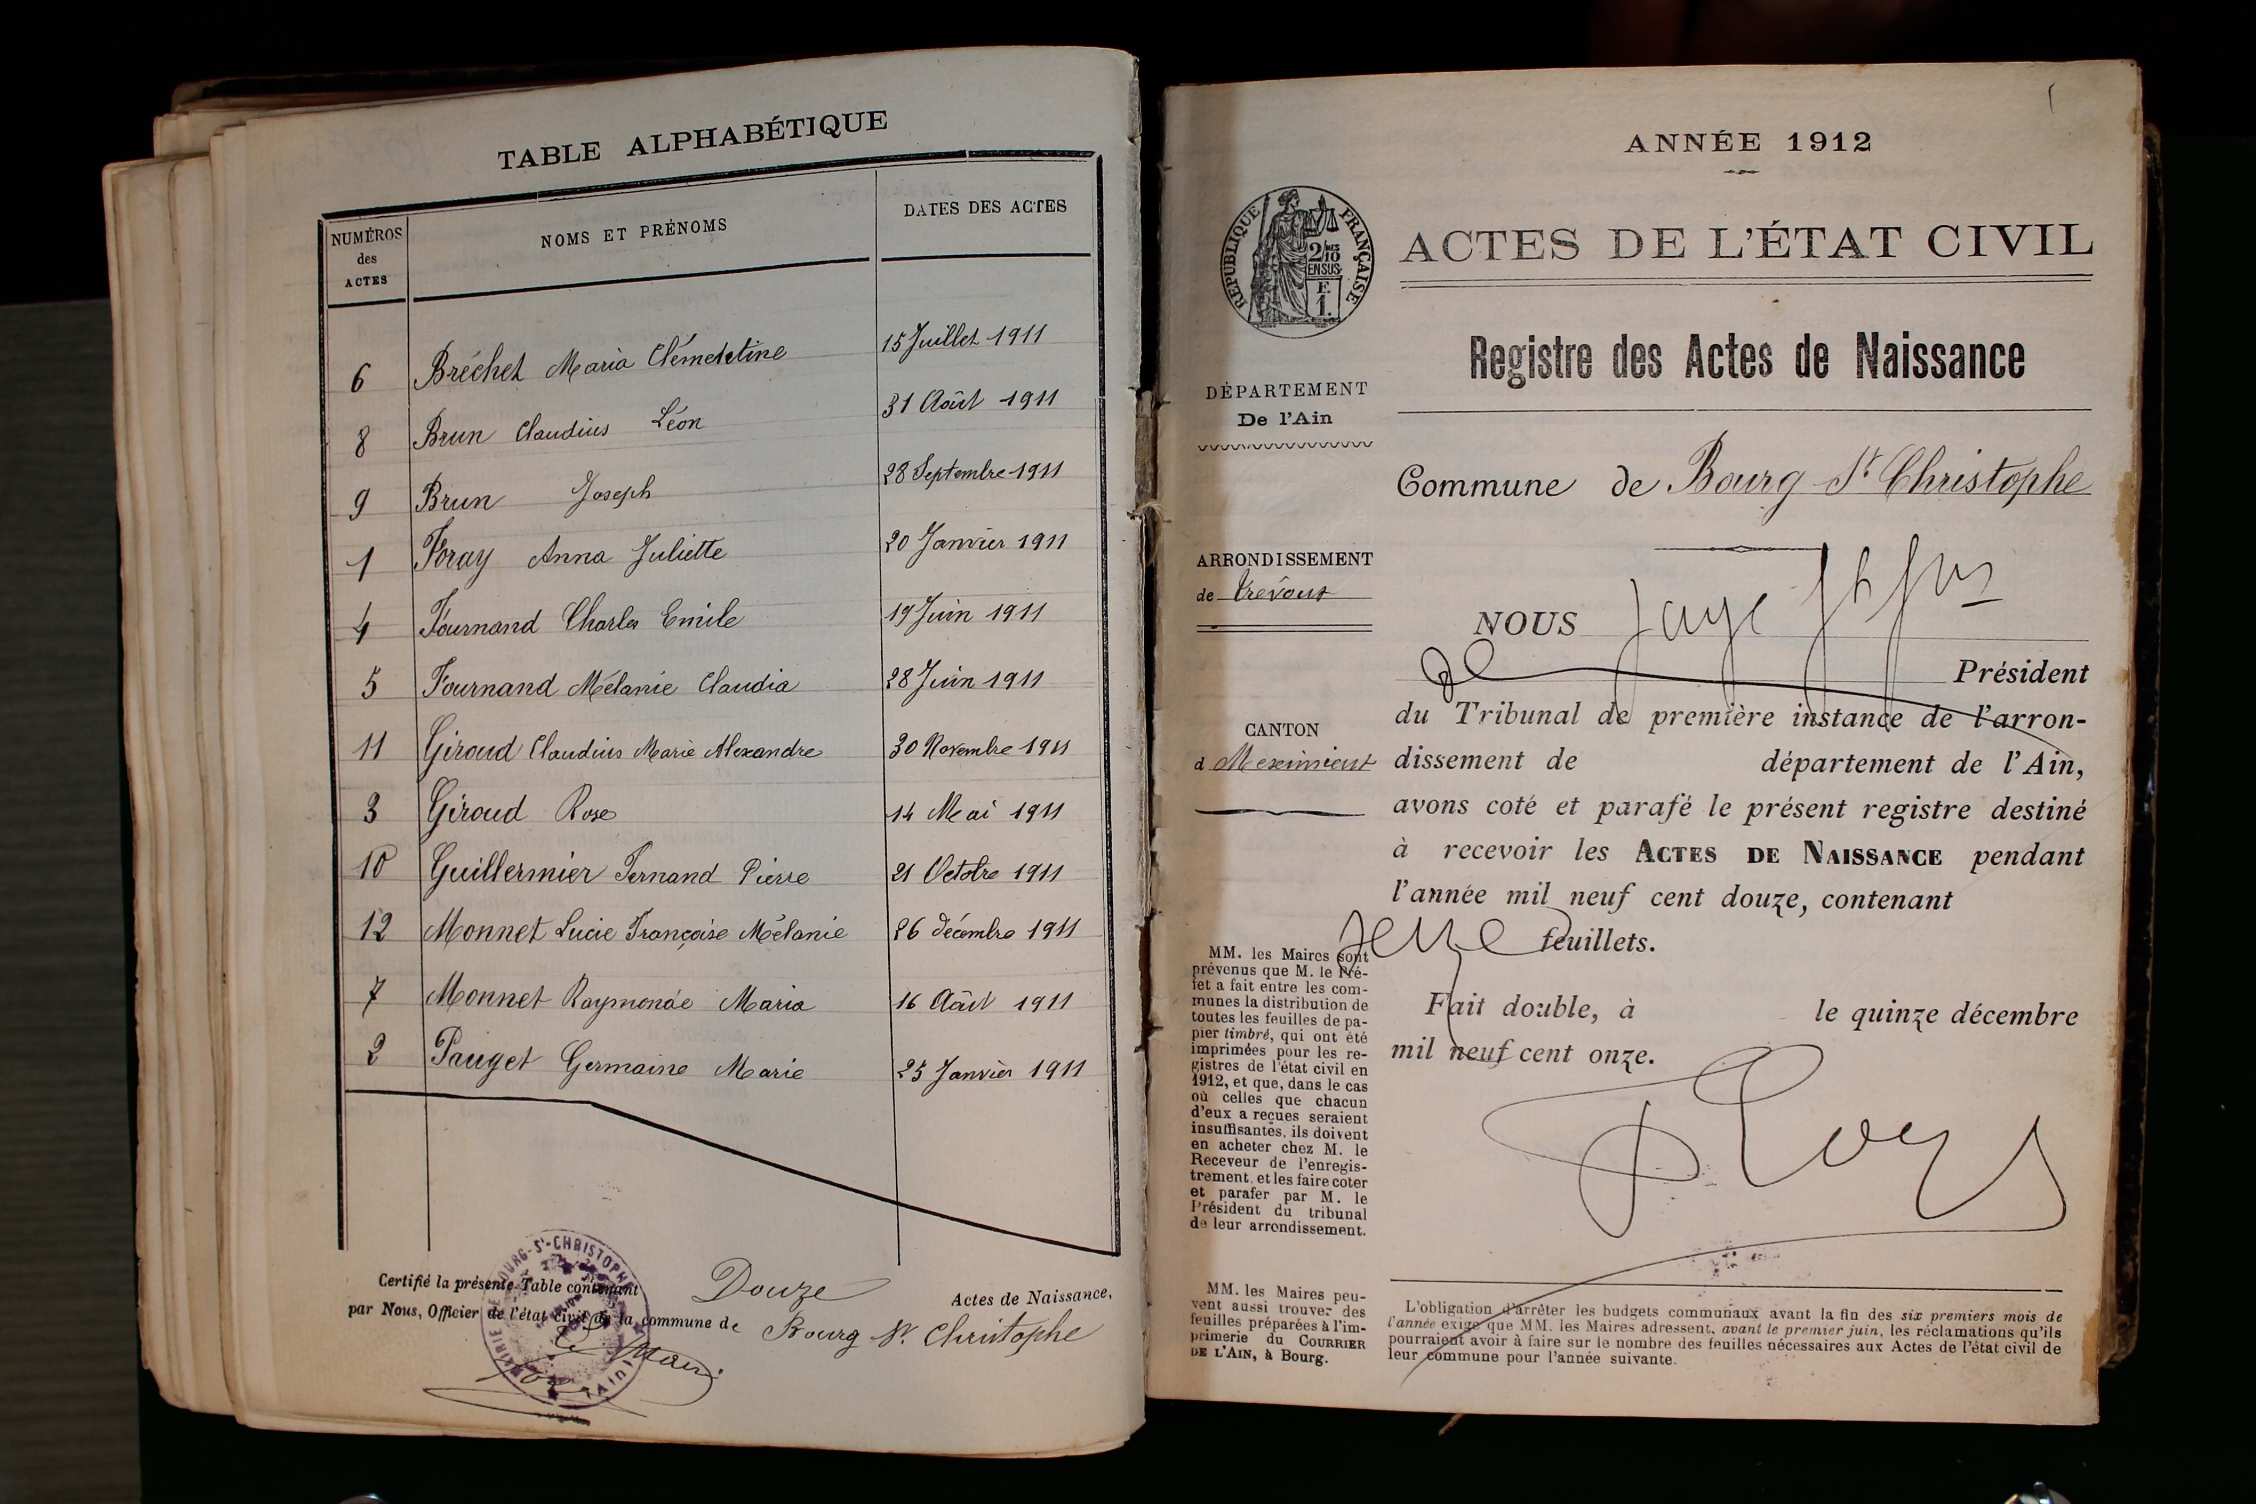 TABLE ALPHABÉTIQUE
NUMÉROS des ACTES NOMS ET PRÉNOMS DATES DES ACTES
6 Bréchet Maria Clémentine 15 Juillet 1911
8 Brun Claudius Léon 31 Août 1911
9 Brun Joseph 28 Septembre 1911
1 Foray Anna Juliette 20 Janvier 1911
4 Fournand Charles Emile 19 Juin 1911
5 Fournand Mélanie Claudia 28 Juin 1911
11 Giroud Claudius Marie Alexandre 30 Novembre 1911
3 Giroud Rose 14 Mai 1911
10 Guillermier Fernand Pierre 21 Octobre 1911
12 Monnet Lucie Françoise Mélanie 26 décembre 1911
7 Monnet Raymonde Maria 16 Août 1911
2 Pauget Germaine Marie 25 Janvier 1911
Certifié la présente Table contenant Douze Actes de Naissance,
par Nous, Officier de l'état civil de la commune de Bourg St Christophe
Le Maire
MAIRIE DE BOURG-ST-CHRISTOPHE (AIN)
ANNÉE 1912
RÉPUBLIQUE FRANÇAISE
2/10 EN SUS
F. 1.
ACTES DE L'ÉTAT CIVIL
Registre des Actes de Naissance
DÉPARTEMENT
De l'Ain
Commune de Bourg St Christophe
ARRONDISSEMENT
de Trévoux
CANTON
d Meximieux
NOUS
Président
du Tribunal de première instance de l'arron-
dissement de département de l'Ain,
avons coté et parafé le présent registre destiné
à recevoir les ACTES DE NAISSANCE pendant
l'année mil neuf cent douze, contenant
seize feuillets.
Fait double, à le quinze décembre
mil neuf cent onze.
MM. les Maires sont
prévenus que M. le Pré-
fet a fait entre les com-
munes la distribution de
toutes les feuilles de pa-
pier timbré, qui ont été
imprimées pour les re-
gistres de l'état civil en
1912, et que, dans le cas
où celles que chacun
d'eux a reçues seraient
insuffisantes, ils doivent
en acheter chez M. le
Receveur de l'enregis-
trement, et les faire coter
et parafer par M. le
Président du tribunal
de leur arrondissement.
MM. les Maires peu-
vent aussi trouver des
feuilles préparées à l'im-
primerie du COURRIER
DE L'AIN, à Bourg.
L'obligation d'arrêter les budgets communaux avant la fin des six premiers mois de
l'année exige que MM. les Maires adressent, avant le premier juin, les réclamations qu'ils
pourraient avoir à faire sur le nombre des feuilles nécessaires aux Actes de l'état civil de
leur commune pour l'année suivante.